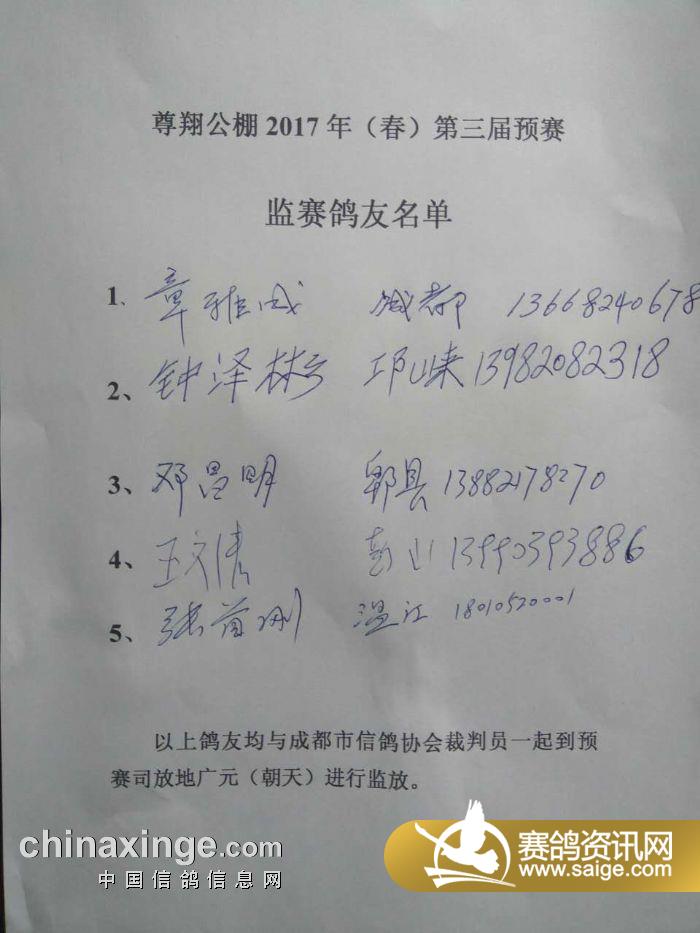 尊翔公棚2017年（春）第三届预赛
监赛鸽友名单
1、章雅成 成都 13668240678
2、钟泽彬 邛崃 13982082318
3、邓昌明 郫县 13882178270
4、王文清 彭山 13990393886
5、张首刚 温江 18010520001
以上鸽友均与成都市信鸽协会裁判员一起到预
赛司放地广元（朝天）进行监放。
chinaxinge.com
中国信鸽信息网
赛鸽资讯网
www.saige.com